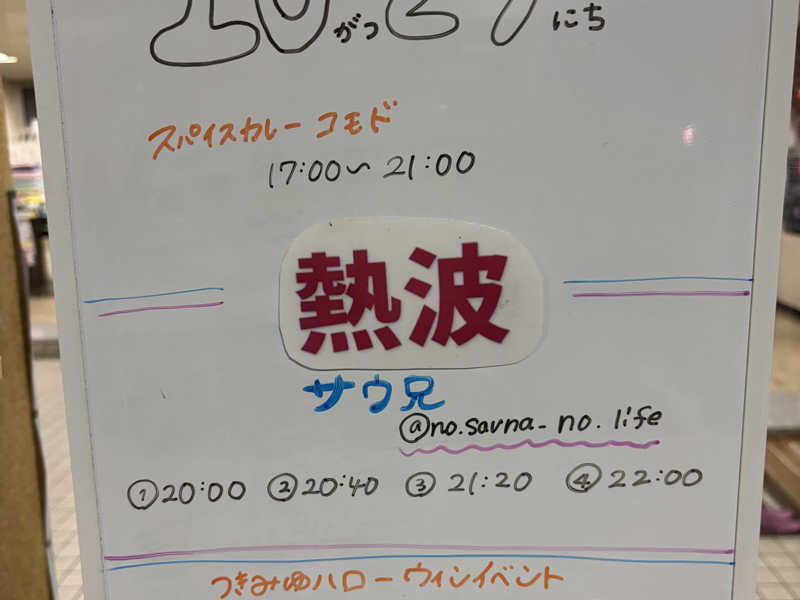 10がつ27にち
スパイスカレー コモド
17:00〜21:00
熱波
サウ兄
@no.sauna_no.life
①20:00 ②20:40 ③21:20 ④22:00
つきみゆハローウィンイベント